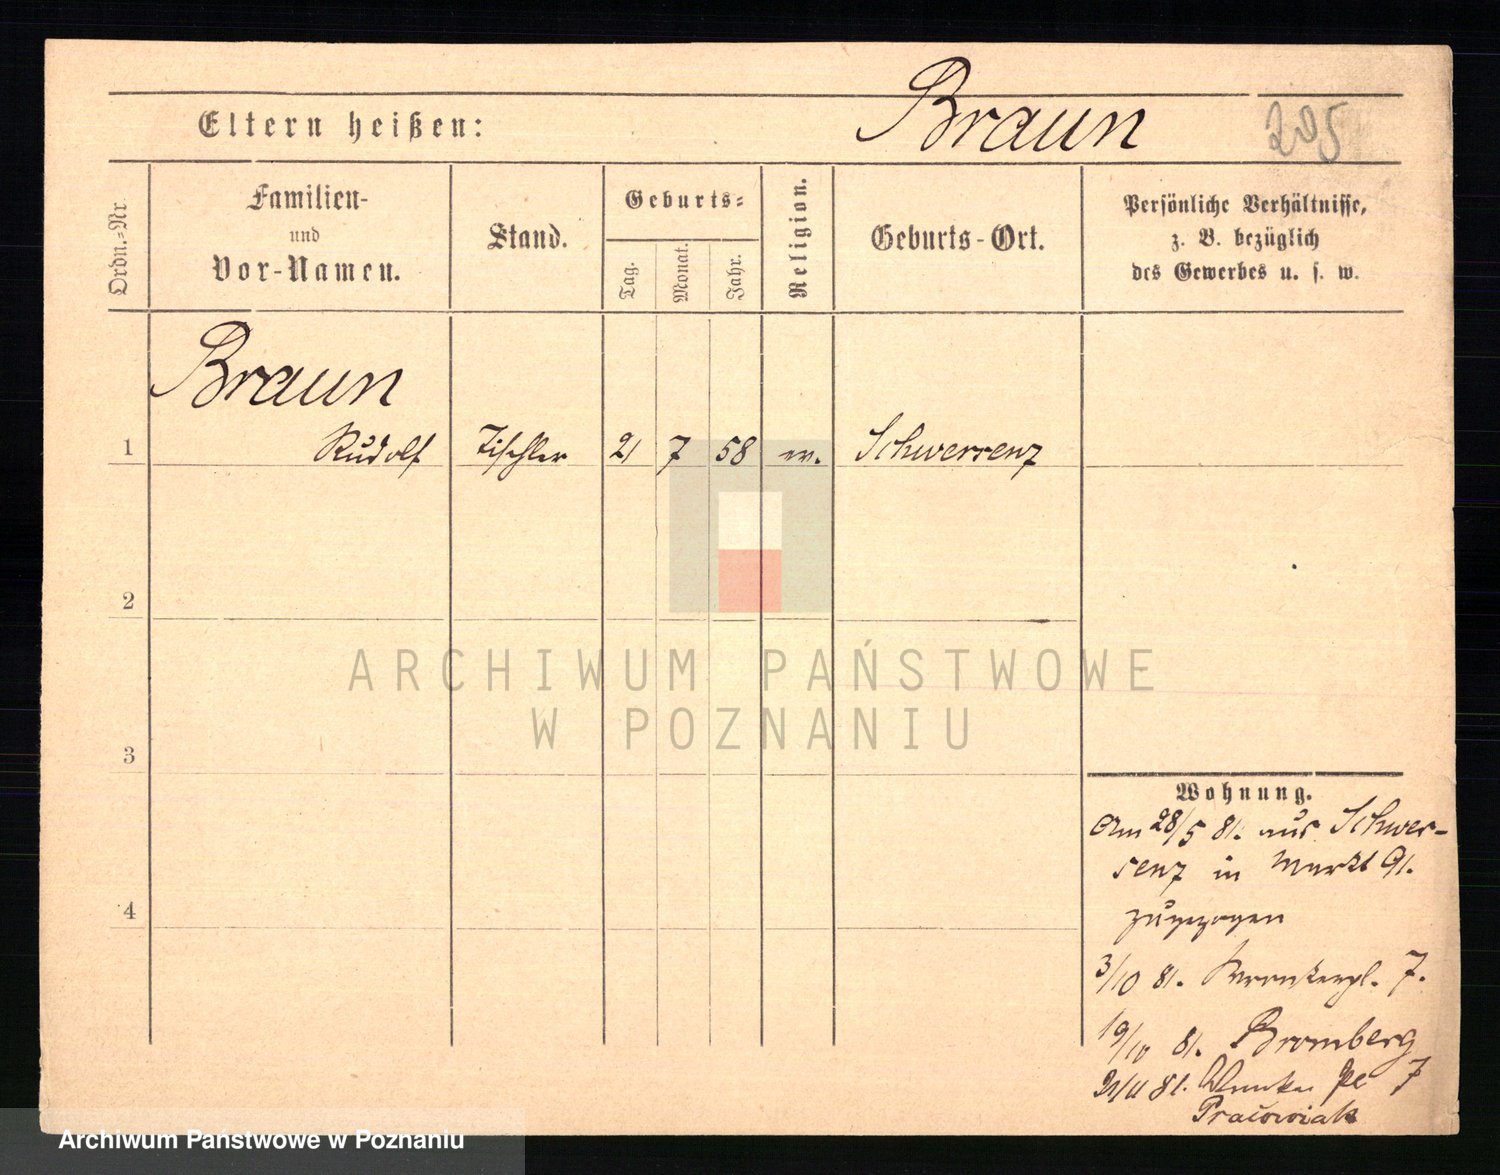 Eltern heißen: Braun 205
Ordn.-Nr.
Familien-
und
Vor-Namen.
Stand.
Geburts-
Tag.
Monat.
Jahr.
Religion.
Geburts-Ort.
Persönliche Verhältnisse,
z. B. bezüglich
des Gewerbes u. s. w.
Braun
1 Rudolf Tischler 21 7 58 ev. Schwersenz
2
3
4
ARCHIWUM PAŃSTWOWE
W POZNANIU
Wohnung.
Am 28/5 81. aus Schwer-
senz in Markt 91.
zugezogen
3/10 81. 7.
19/10 81. Bromberg
21/11 81. 7
Archiwum Państwowe w Poznaniu